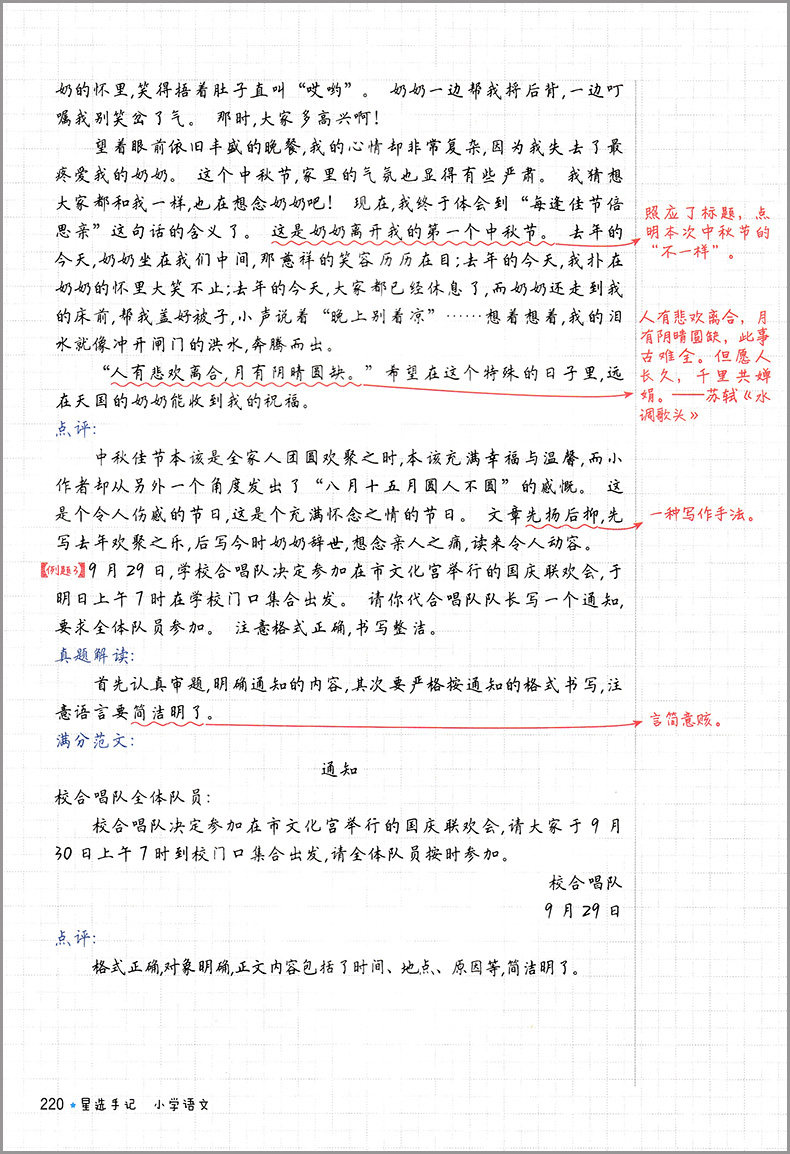 奶的怀里,笑得捂着肚子直叫“哎哟”。 奶奶一边帮我捋后背,一边叮
嘱我别笑岔了气。 那时,大家多高兴啊!
望着眼前依旧丰盛的晚餐,我的心情却非常复杂,因为我失去了最
疼爱我的奶奶。 这个中秋节,家里的气氛也显得有些严肃。 我猜想
大家都和我一样,也在想念奶奶吧! 现在,我终于体会到“每逢佳节倍
思亲”这句话的含义了。 这是奶奶离开我的第一个中秋节。 去年的
今天,奶奶坐在我们中间,那慈祥的笑容历历在目;去年的今天,我扑在
奶奶的怀里大笑不止;去年的今天,大家都已经休息了,而奶奶还走到我
的床前,帮我盖好被子,小声说着“晚上别着凉”……想着想着,我的泪
水就像冲开闸门的洪水,奔腾而出。
“人有悲欢离合,月有阴晴圆缺。”希望在这个特殊的日子里,远
在天国的奶奶能收到我的祝福。
照应了标题，点
明本次中秋节的
“不一样”。
人有悲欢离合，月
有阴晴圆缺，此事
古难全。但愿人
长久，千里共婵
娟。——苏轼《水
调歌头》
点评:
中秋佳节本该是全家人团圆欢聚之时,本该充满幸福与温馨,而小
作者却从另外一个角度发出了“八月十五月圆人不圆”的感慨。 这
是个令人伤感的节日,这是个充满怀念之情的节日。 文章先扬后抑,先
写去年欢聚之乐,后写今时奶奶辞世,想念亲人之痛,读来令人动容。
一种写作手法。
【例题3】9月29日,学校合唱队决定参加在市文化宫举行的国庆联欢会,于
明日上午7时在学校门口集合出发。 请你代合唱队队长写一个通知,
要求全体队员参加。 注意格式正确,书写整洁。
真题解读:
首先认真审题,明确通知的内容,其次要严格按通知的格式书写,注
意语言要简洁明了。
言简意赅。
满分范文:
通知
校合唱队全体队员:
校合唱队决定参加在市文化宫举行的国庆联欢会,请大家于9月
30日上午7时到校门口集合出发,请全体队员按时参加。
校合唱队
9月29日
点评:
格式正确,对象明确,正文内容包括了时间、地点、原因等,简洁明了。
220 ★ 星选手记 小学语文